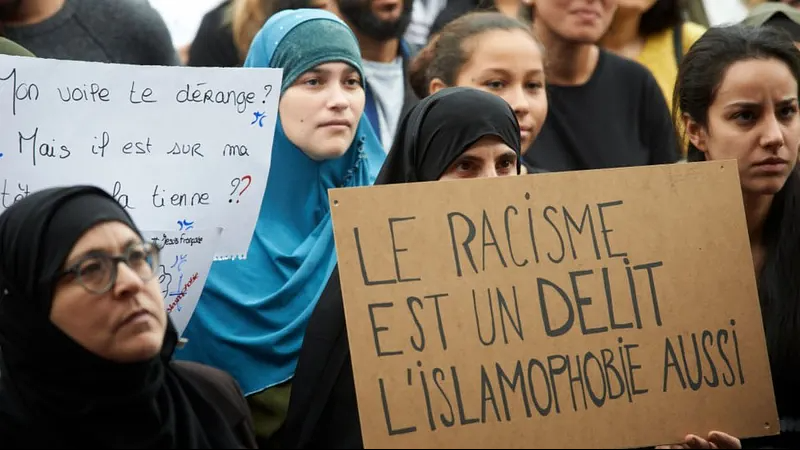 Mon voile te dérange?
Mais il est sur ma
la tienne ??
# Je suis Française
LE RACISME
EST UN DELIT
L'ISLAMOPHOBIE AUSSI